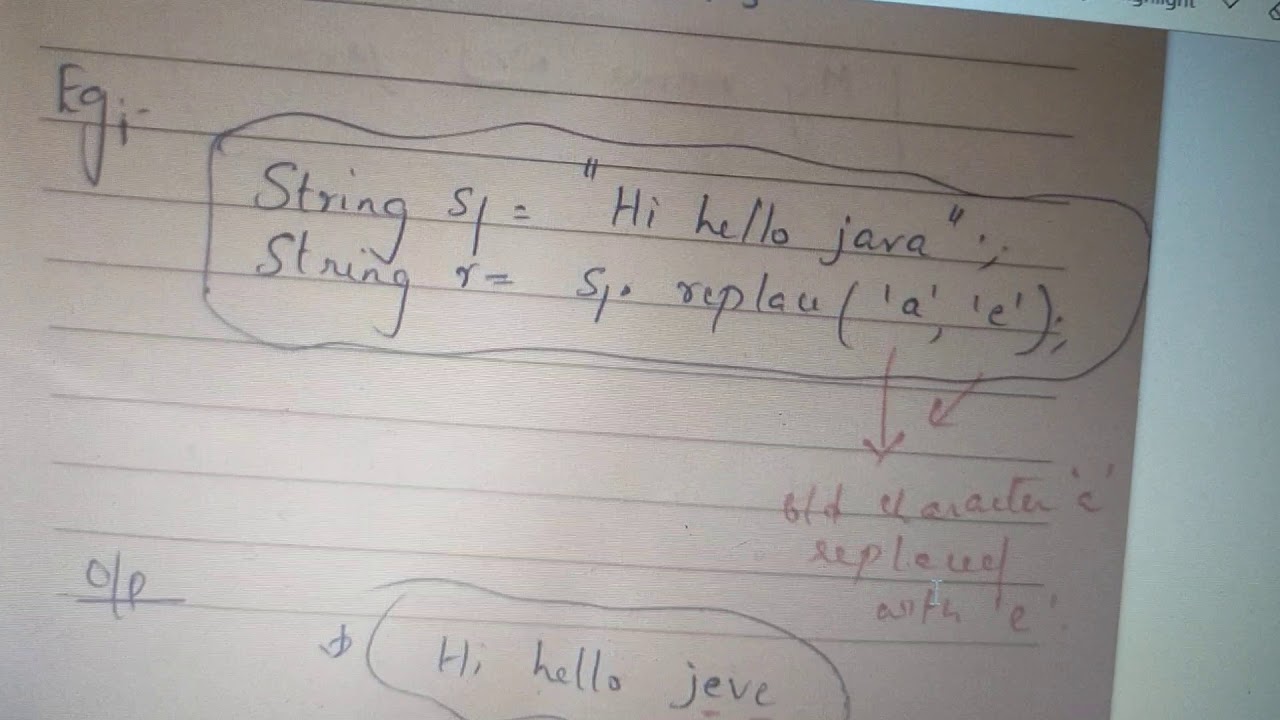 Eg:-
String s1 = "Hi hello java";
String r = s1. replace('a', 'e');
old character
replaced
with 'e'.
O/p
Hi hello jeve